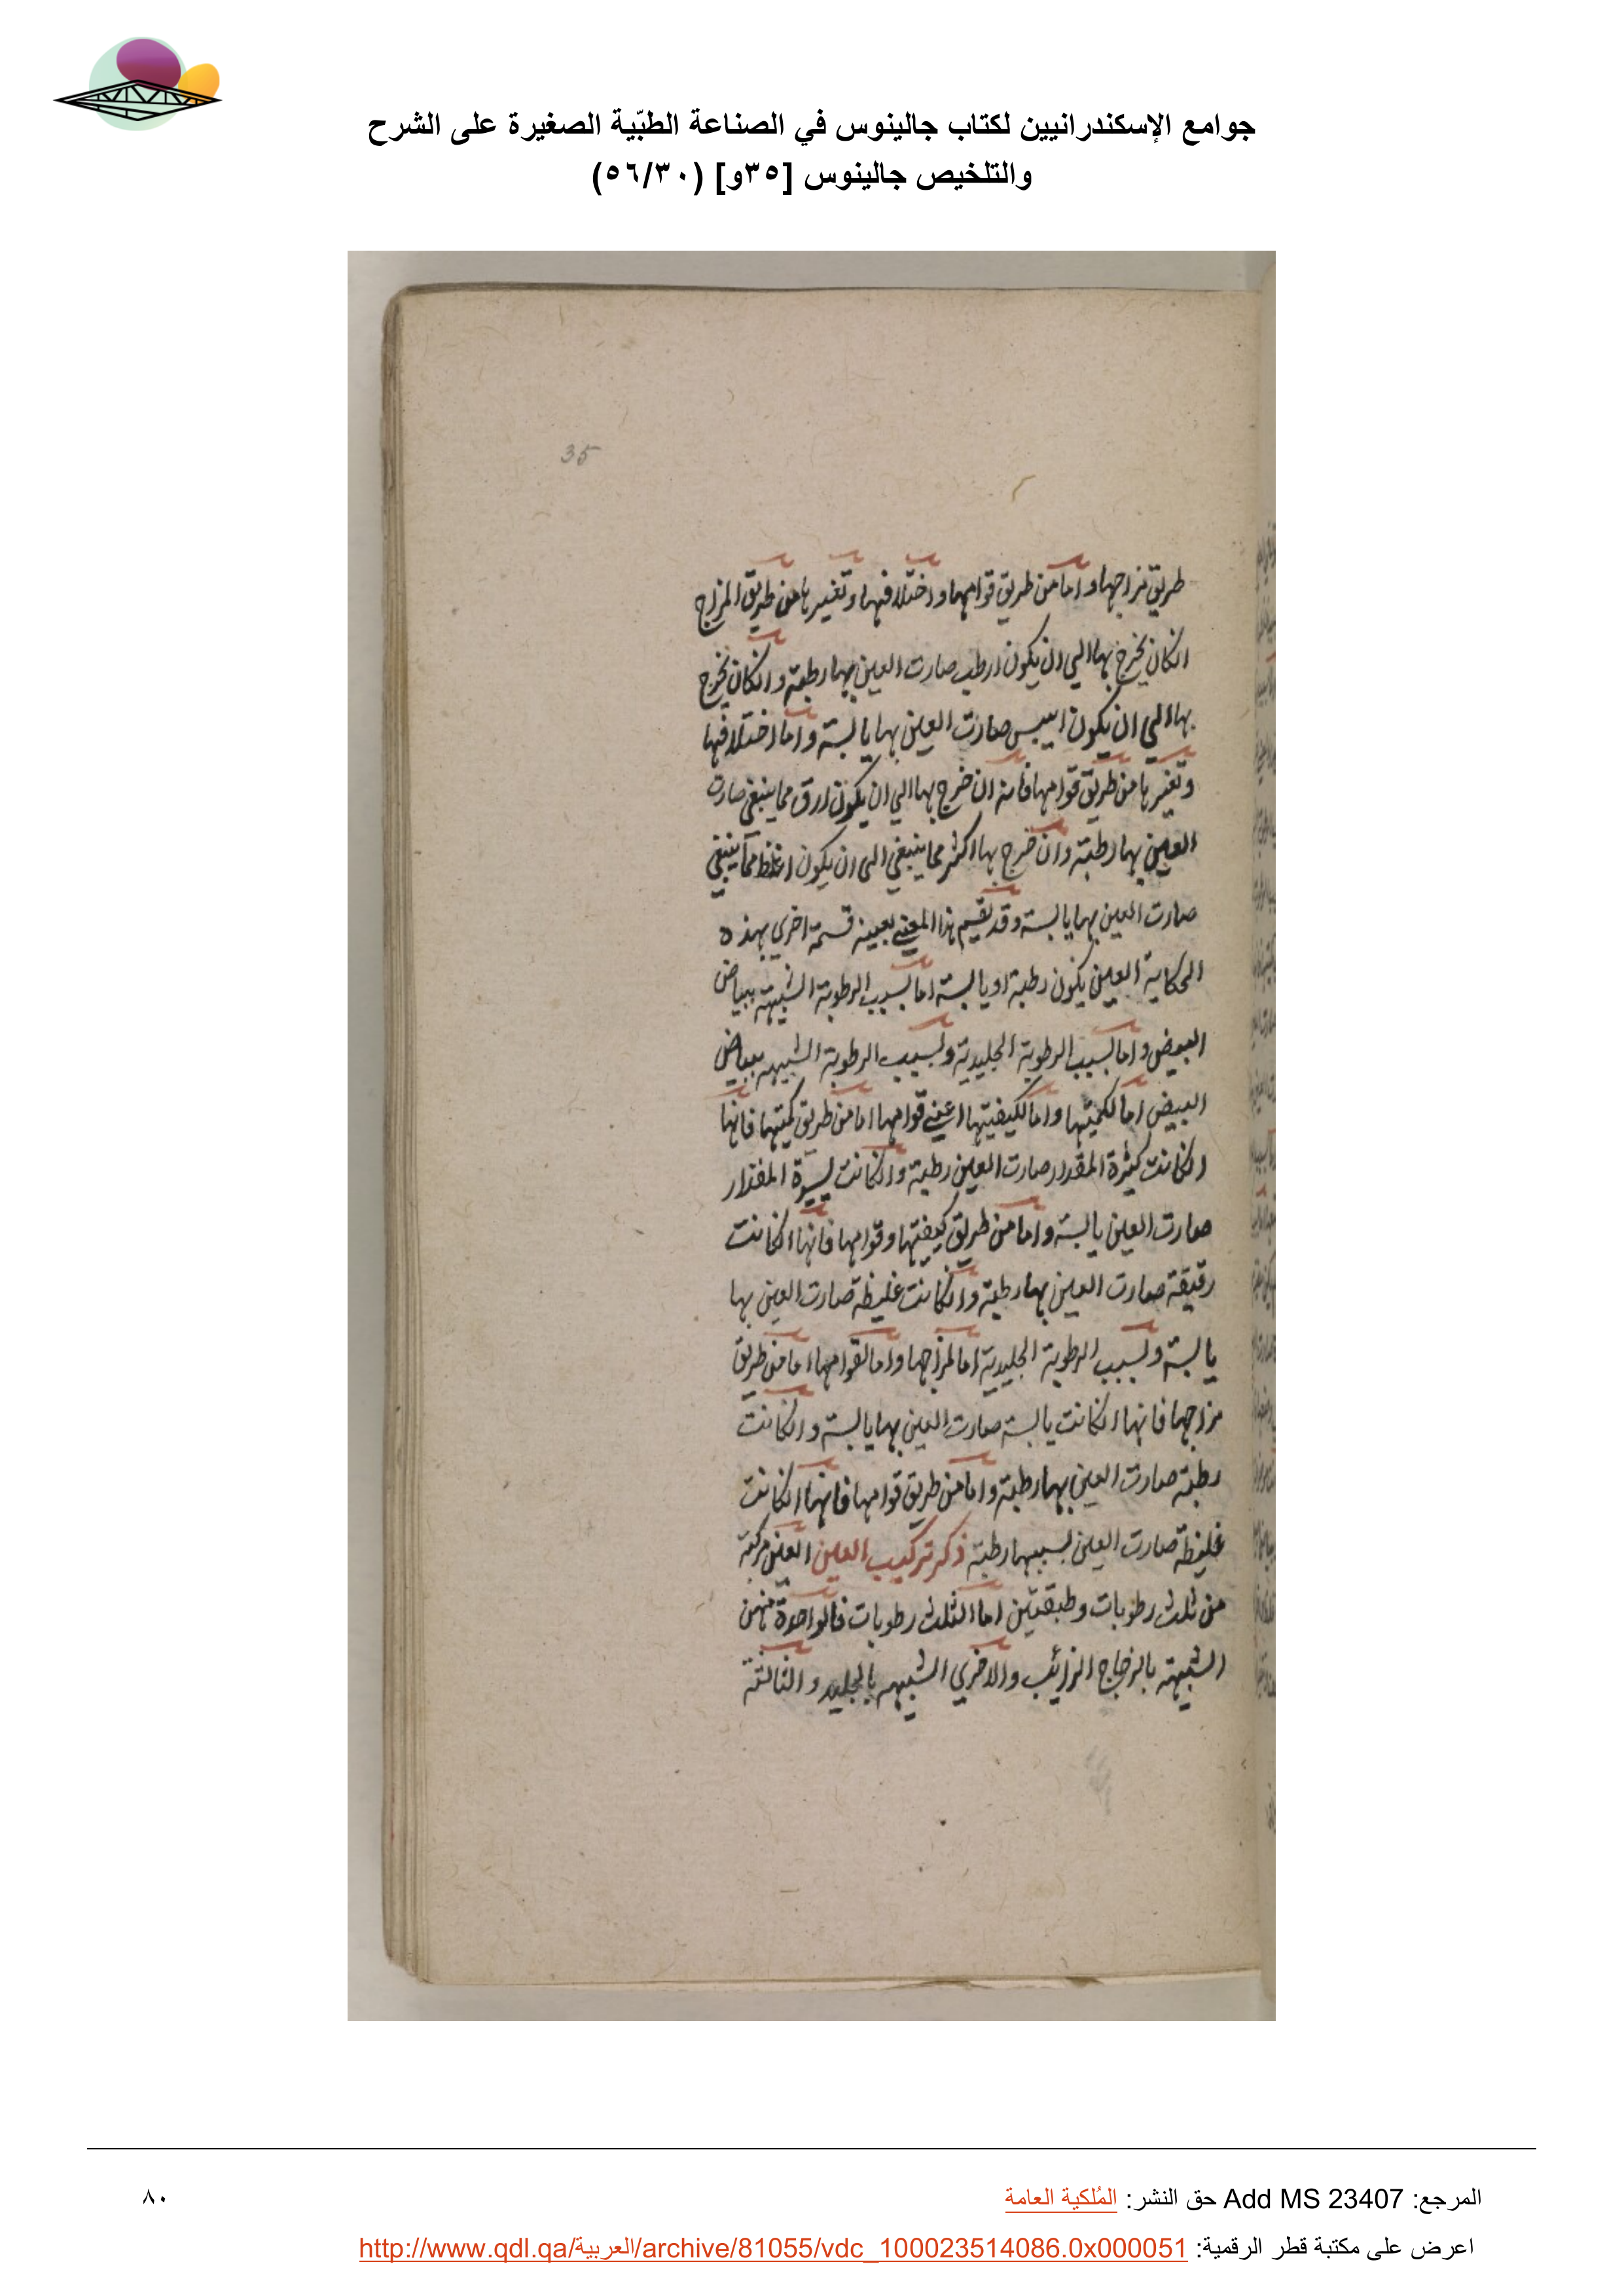 جوامع الإسكندرانيين لكتاب جالينوس في الصناعة الطبّية الصغيرة على الشرح
والتلخيص جالينوس [٣٥و] (٥٦/٣٠)
35
طريق مزاجها واما من طريق قوامها واختلافها وتغيرها من طريق المزاج
انكان يخرج بها الي ان يكون ارطب صارت العين بها رطبة وانكان يخرج
بها الي ان يكون ايبس صارت العين بها يابسة واما اختلافها
وتغيرها من طريق قوامها فانه ان خرج بها الي ان يكون ارق مما ينبغي صارت
العين بها رطبة وان خرج بها اكثر مما ينبغي الى ان يكون اغلظ مما ينبغي
صارت العين بها يابسة وقد يقسم هذا المعني بعينه قسمة اخري بهذه
الحكاية العين يكون رطبة او يابسة اما بسبب الرطوبة الشبيهة ببياض
البيض واما بسبب الرطوبة الجليدية وبسبب الرطوبة الشبيهه ببياض
البيض اما لكميتها واما لكيفيتها اعني قوامها اما من طريق كميتها فانها
انكانت كثيرة المقدار صارت العين رطبة وانكانت يسيرة المقدار
صارت العين يابسة واما من طريق كيفيتها وقوامها فانها انكانت
رقيقة صارت العين بها رطبة وانكانت غليظة صارت العين بها
يابسة وبسبب الرطوبة الجليدية اما لمزاجها واما لقوامها اما من طريق
مزاجها فانها انكانت يابسة صارت العين بها يابسة وانكانت
رطبة صارت العين بها رطبة واما من طريق قوامها فانها انكانت
غليظة صارت العين بسببها رطبة ذكر تركيب العين العين مركبة
من ثلث رطوبات وطبقتين اما الثلث رطوبات فالواحدة منهن
الشبيهة بالزجاج الزائب والاخري الشبيهه بالجليد والثالثة
المرجع: Add MS 23407 حق النشر: المُلكية العامة
٨٠
اعرض على مكتبة قطر الرقمية: http://www.qdl.qa/العربية/archive/81055/vdc_100023514086.0x000051